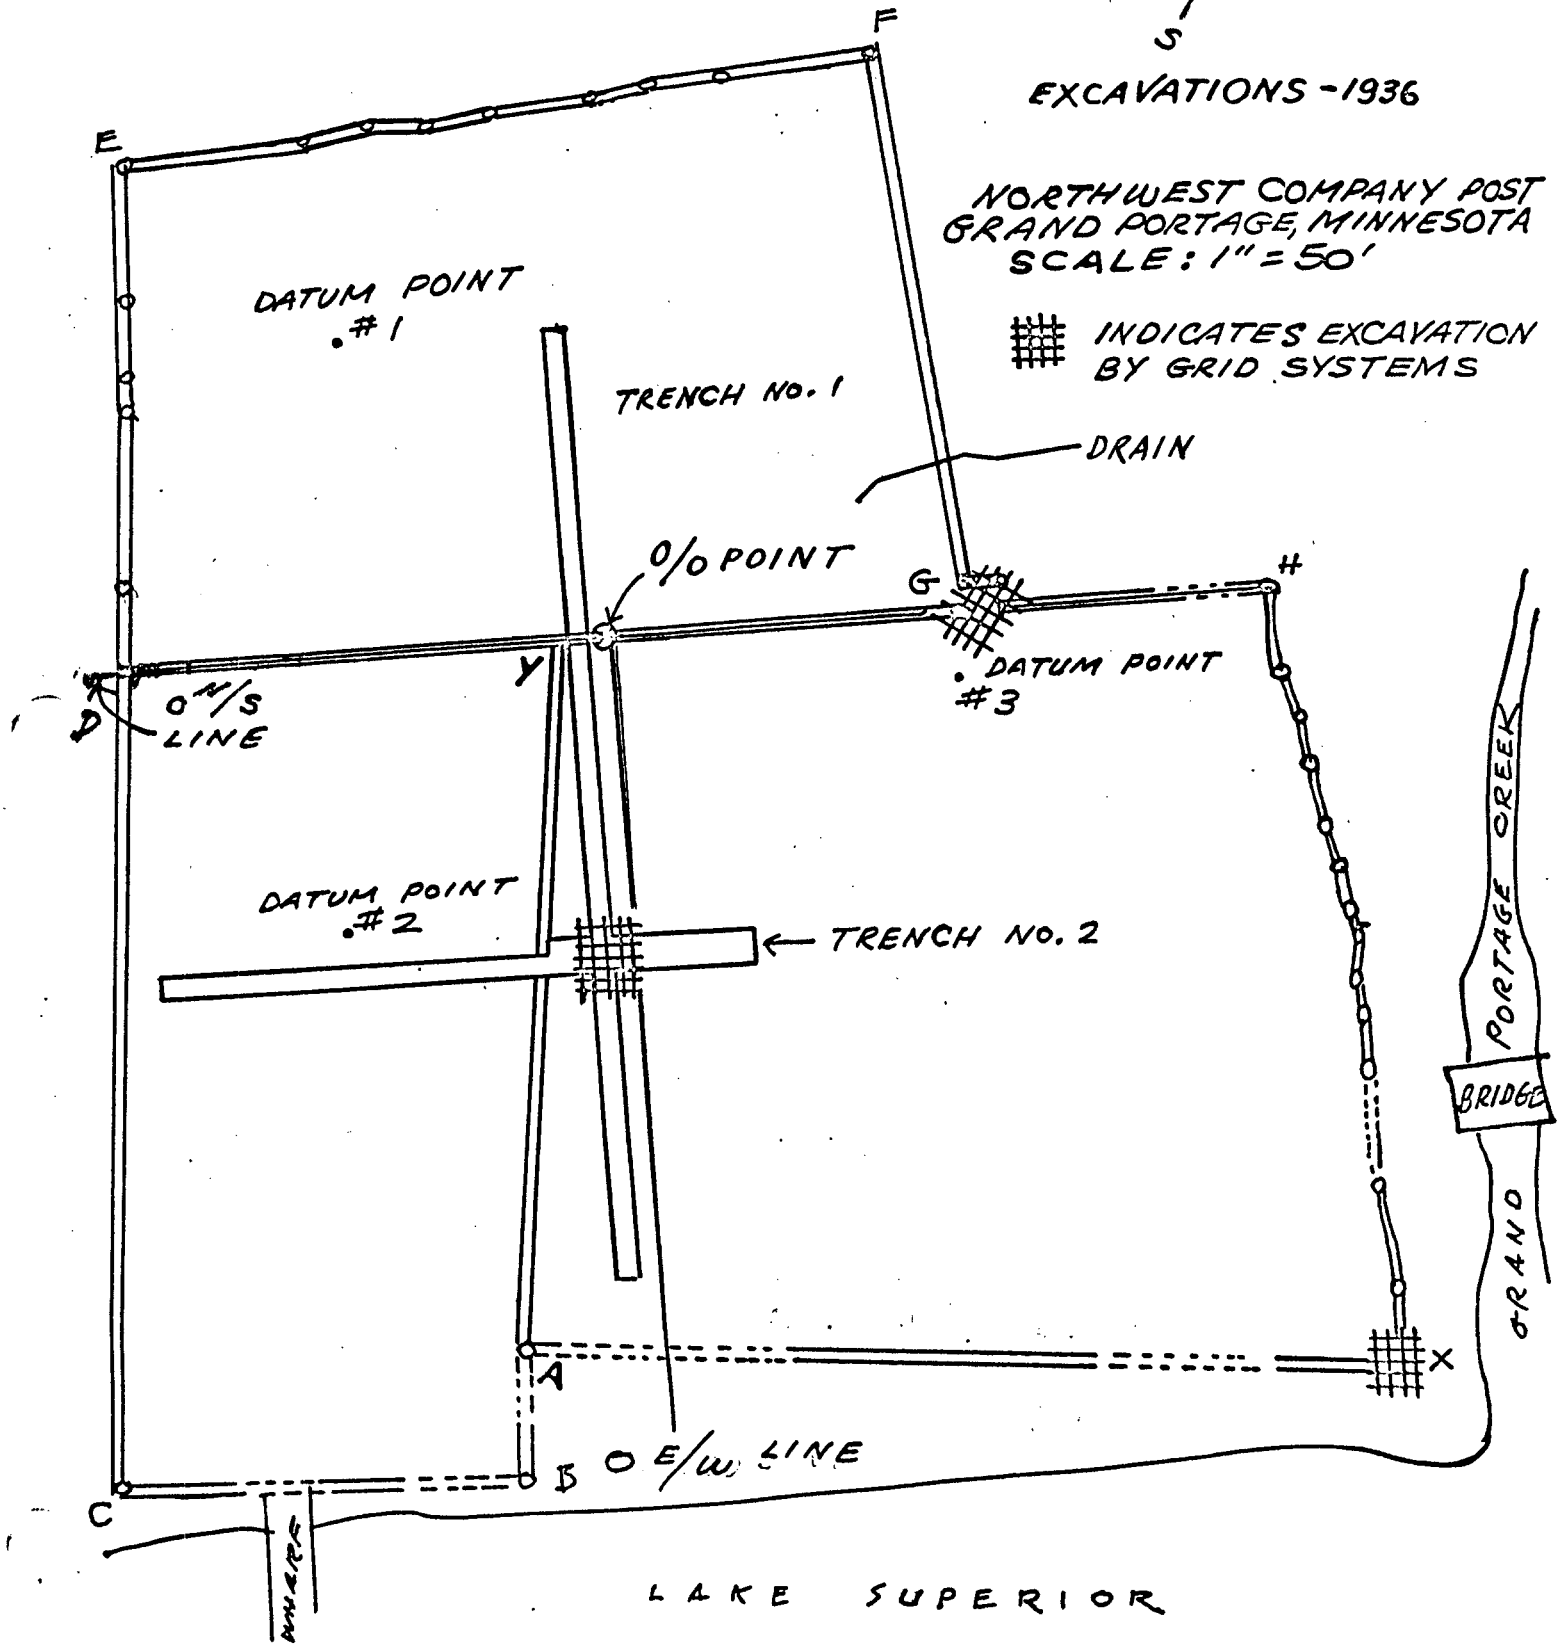 S
EXCAVATIONS - 1936
NORTHWEST COMPANY POST
GRAND PORTAGE, MINNESOTA
SCALE: 1" = 50'
INDICATES EXCAVATION
BY GRID SYSTEMS
F
E
DATUM POINT
#1
TRENCH NO. 1
DRAIN
0/0 POINT
G
H
Y
DATUM POINT
#3
D
0 N/S
LINE
DATUM POINT
#2
TRENCH NO. 2
PORTAGE CREEK
BRIDGE
GRAND
A
X
B
O E/W LINE
C
WHARF
LAKE SUPERIOR